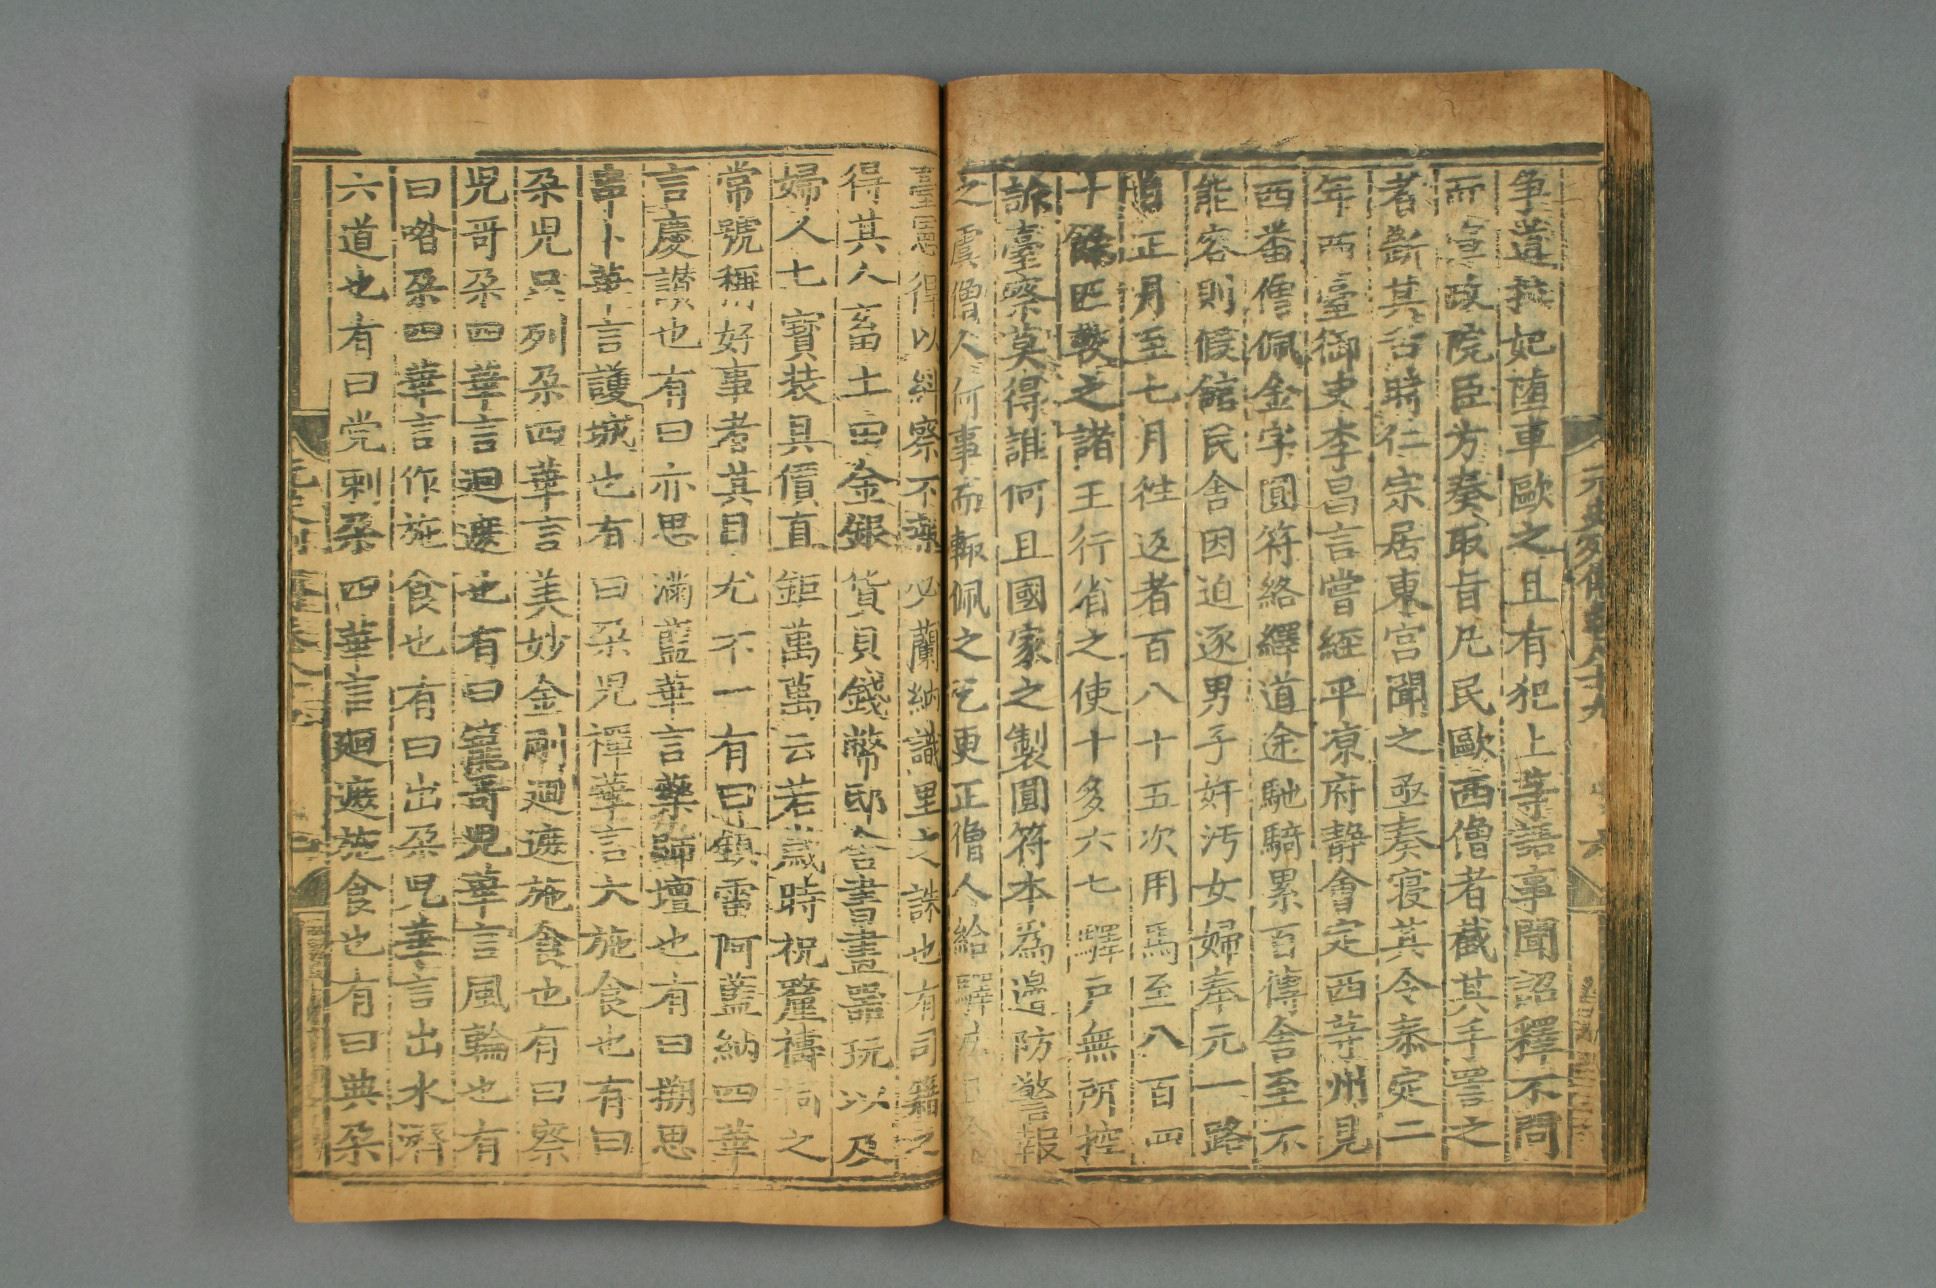 争道拉妃堕車歐之且有犯上等語事聞詔釋不問
而宣政院臣方奏取旨凡民歐西僧者截其手詈之
者斷其舌時仁宗居東宮聞之亟奏寝其令泰定二
年西臺御史李昌言嘗經平凉府静會定西等州見
西番僧佩金字圓符絡繹道途馳騎累百傳舎至不
能容則假館民舎因迫逐男子奸汚女婦奉元一路
自正月至七月往返者百八十五次用馬至八百四
十餘匹較之諸王行省之使十多六七驛户無所控
訴臺察莫得誰何且國家之製圓符本為邊防警報
之虞僧人何事而輙佩之乞更正僧人給驛法且令
臺憲得以糾察不報必蘭納識里之誅也有司籍之
得其人畜土田金銀貨貝錢幣邸舎書畫器玩以及
婦人七寳装具價直鉅萬萬云若歳時祝釐禱祠之
常號稱好事者其目尤不一有曰鎮雷阿藍納四華
言慶讃也有曰亦思滿藍華言藥師壇也有曰搠思
串卜華言護城也有曰朶児禪華言大施食也有曰
朶児只列朶四華言美妙金剛廻遮施食也有曰察
児哥朶四華言廻遮也有曰籠哥児華言風輪也有
曰喒朶四華言作施食也有曰出朶児華言出水濟
六道也有曰党剌朶四華言廻遮施食也有曰典朶